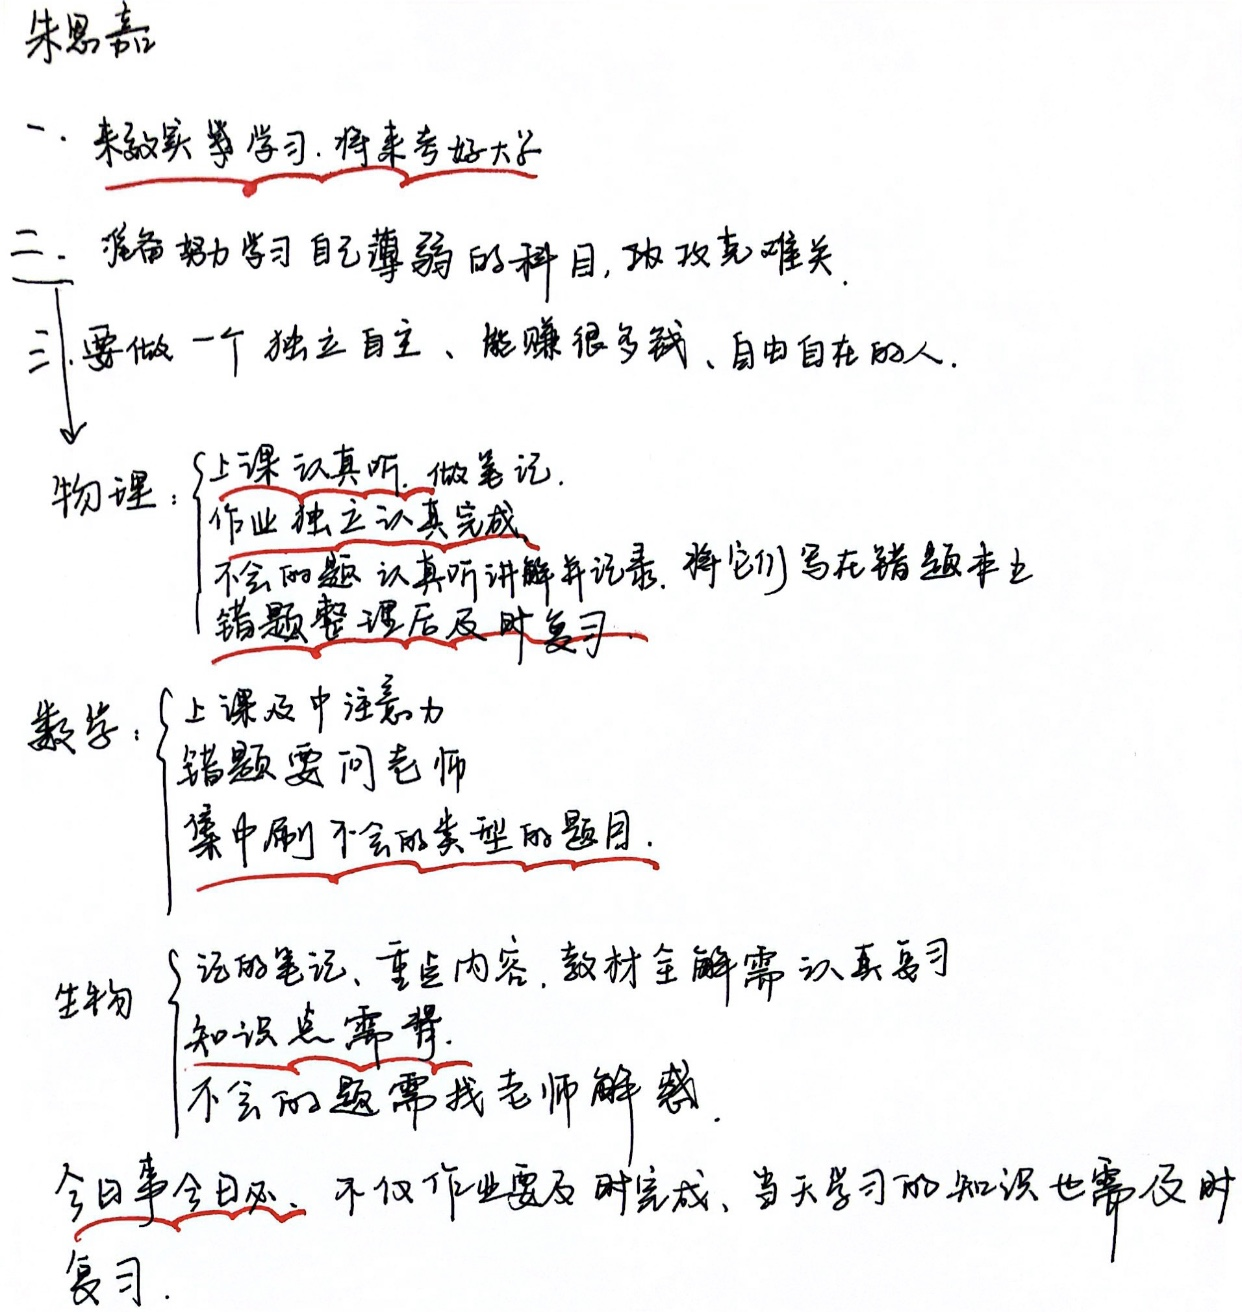 朱思嘉
一. 来致实学学习.将来考好大学
二. 准备努力学习自己薄弱的科目,攻攻克难关.
三.要做一个独立自主、能赚很多钱、自由自在的人.
物理: 上课认真听.做笔记.
作业独立认真完成
不会的题认真听讲解并记录.将它们写在错题本上
错题整理后及时复习.
数学: 上课及中注意力
错题要问老师
集中刷不会的类型的题目.
生物 记的笔记、重点内容.教材全解需认真复习
知识点需背.
不会的题需找老师解惑.
今日事今日必、不仅作业要及时完成、当天学习的知识也需及时
复习.